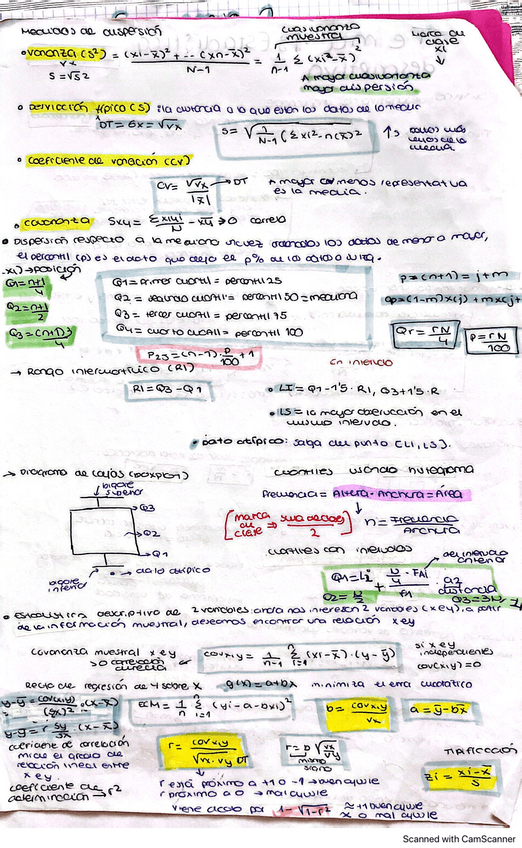 Medidas de dispersión
cuasivarianza muestral
marca de clase xi
• varianza (s²) = (xi-x̄)² + ... (xn-x̄)² / N-1 = 1/n-1 Σ (xi-x̄)²
vx
S = √s²
A mayor cuasivarianza mayor dispersión.
• Desviación típica (s): la distancia a la que están los datos de la media
DT = σx = √vx
S = √ 1/N-1 (Σxi² - n(x̄)²
↑s datos más lejos de la media
• coeficiente de variación (CV)
CV = √vx / |x̄| → DT
A mayor CV menos representativa es la media.
• covarianza Sxy = Σxiyi / N - x̄ȳ → 0
• Dispersión respecto a la mediana: una vez ordenados los datos de menor a mayor,
el percentil (p) es el dato que deja el p% de los datos a su izq.
xi) → posición
Q1 = n+1 / 4
Q2 = n+1 / 2
Q3 = (n+1)3 / 4
Q1 = primer cuartil = percentil 25
Q2 = segundo cuartil = percentil 50 = mediana
Q3 = tercer cuartil = percentil 75
Q4 = cuarto cuartil = percentil 100
p = (n+1) = j+m
Qr = rN / 4
P = rN / 100
P25 = (n-1) · p / 100 + 1
→ Rango intercuartílico (RI)
RI = Q3 - Q1
En intervalo
• LI = Q1 - 1'5 · RI, Q3 + 1'5 · R
• LS = la mayor observación en el mismo intervalo.
• Dato atípico: salga del punto [LI, LS].
→ Diagrama de cajas (boxplot)
bigote superior
Q3
Q2
Q1
bigote inferior
dato atípico
cuartiles usando histograma
Frecuencia = Altura · Anchura = Área
[marca de clase ⇒ / 2]
n = Frecuencia / Anchura
cuartiles con intervalos
del intervalo anterior
Q1 = Li + N/4 - FAi / fi · a2
distancia
Q2 = N/2
Q3 = 3N/4
• Estadística descriptiva de 2 variables: cuando nos interesan 2 variables (x e y), a partir
de la información muestral, deseamos encontrar una relación x e y
covarianza muestral x e y
>0 correlación directa
cov x,y = 1/n-1 Σ (xi - x̄) · (y - ȳ)
si x e y independientes cov(x,y) = 0
Recta de regresión de Y sobre X
g(x) = a + bx minimiza el error cuadrático
y - ȳ = cov(x,y) / (sx)² · (x - x̄)
y - ȳ = r sy / sx (x - x̄)
ECM = 1/n Σ (yi - a - bxi)²
b = cov x,y / vx
a = ȳ - bx̄
coeficiente de correlación
mide el grado de
relación lineal entre
x e y.
coeficiente de
determinación → r²
r = cov x,y / √vx · vy DT
r = b √vx / vy
mismo signo
Tipificación
zi = xi - x̄ / s
r está próximo a +1 o -1 → buen ajuste
r próximo a 0 → mal ajuste
Viene dado por 1 - √1-r² ≈ +1 buen ajuste
≈ 0 mal ajuste
Scanned with CamScanner